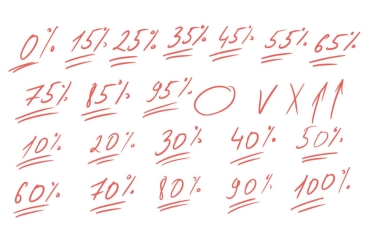 0% 15% 25% 35% 45% 55% 65%
75% 85% 95%
10% 20% 30% 40% 50%
60% 70% 80% 90% 100%